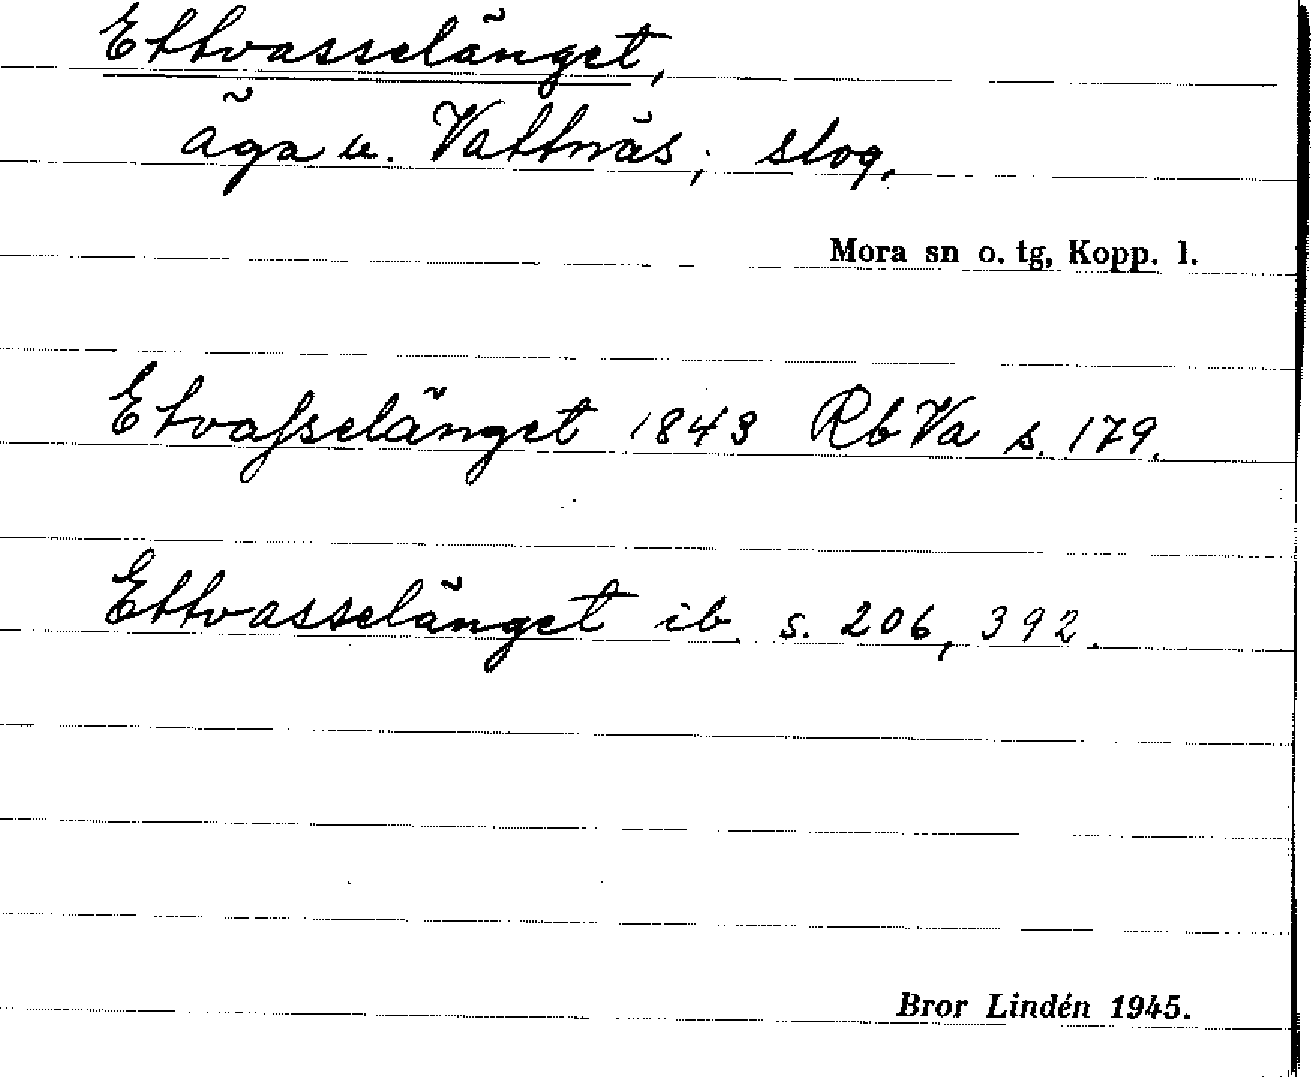 Ettvasselänget,
äga u. Vattnäs; slog.
Mora sn o. tg, Kopp. l.
Etvaſselänget 1843 Rb Va s. 179.
Ettvasselänget ib. s. 206, 392.
Bror Lindén 1945.